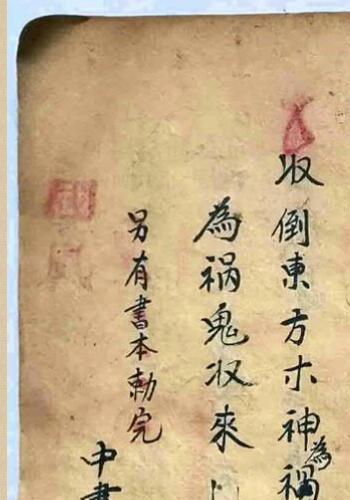 收倒東方木神為禍
為禍鬼收來
另有書本勅完
中書